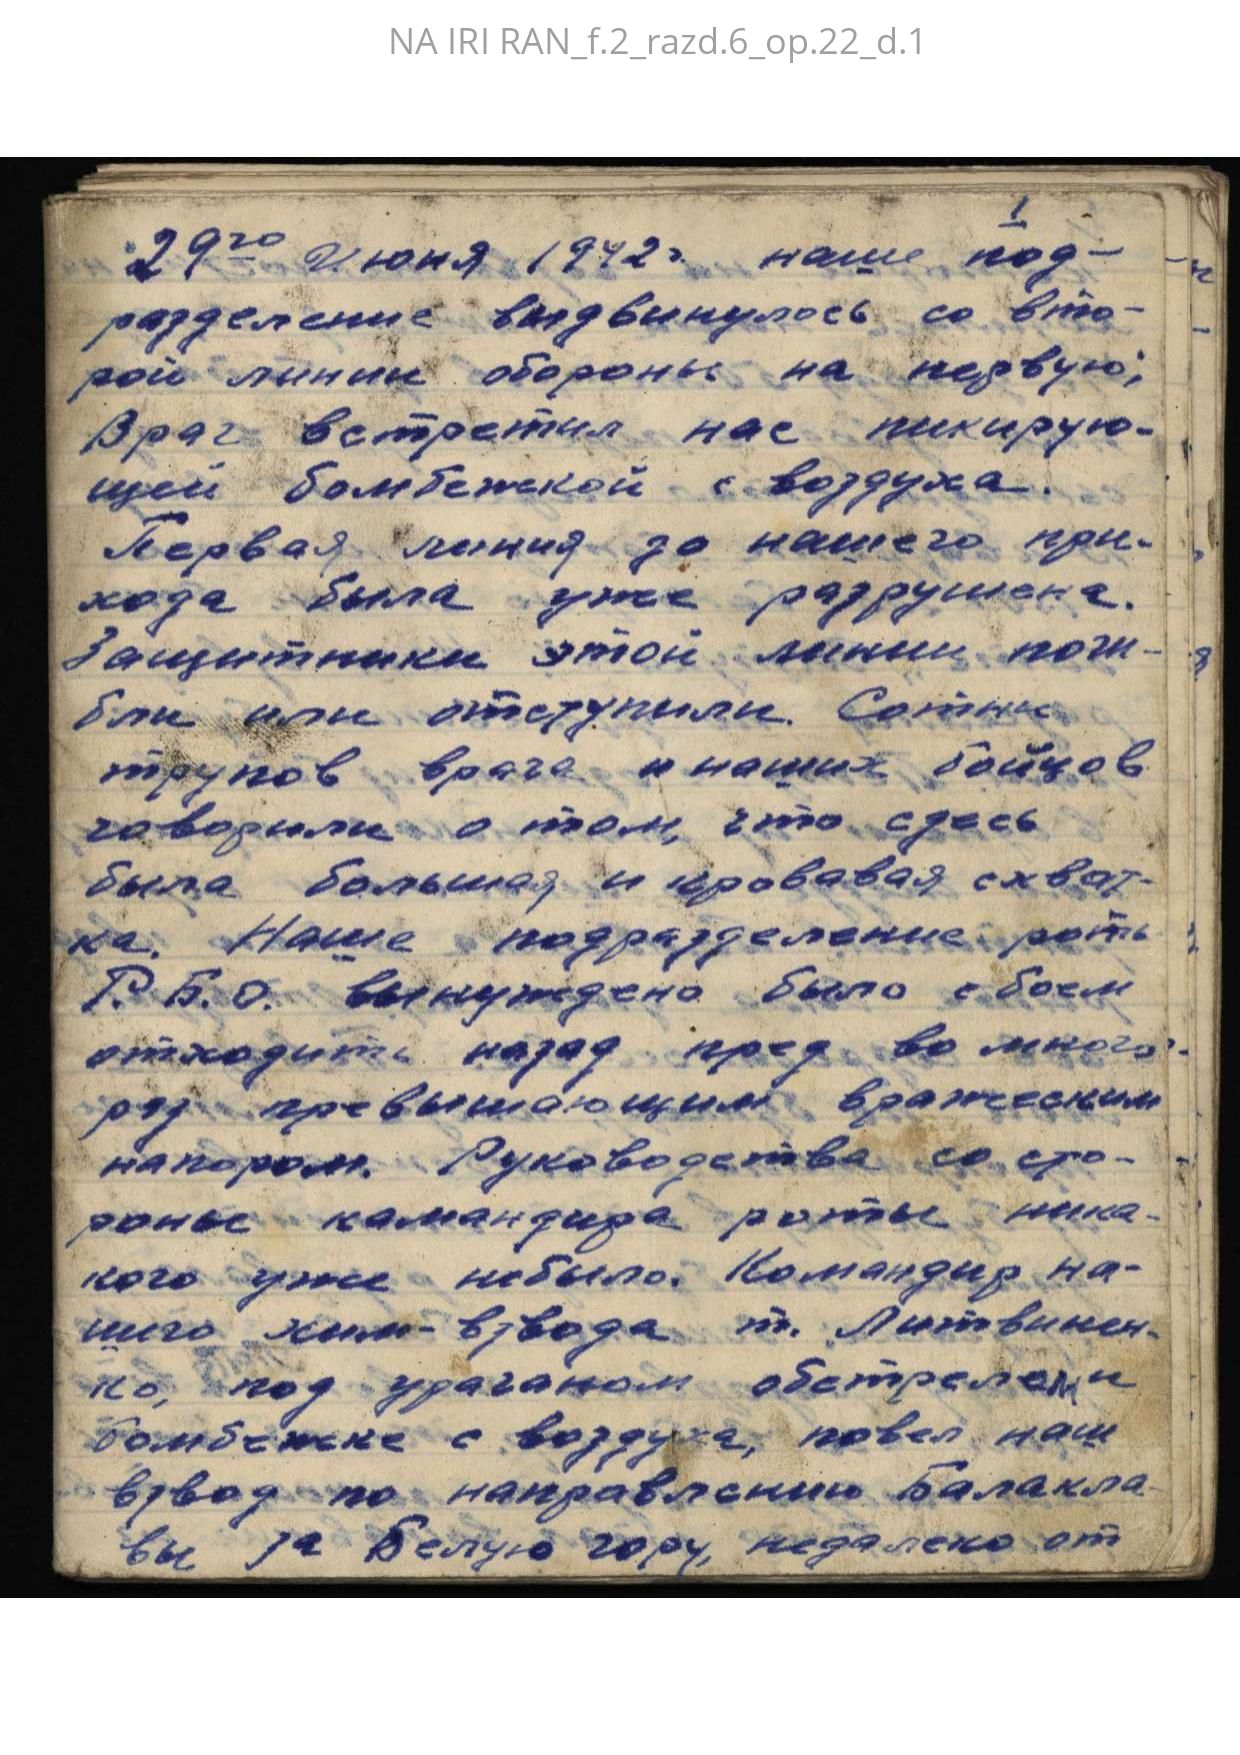 NA IRI RAN_f.2_razd.6_op.22_d.1
1
29го Июня 1942г. наше под-
разделение выдвинулось со вто-
рой линии обороны на первую;
Враг встретил нас пикирую-
щей бомбежкой с воздуха.
Первая линия до нашего при-
хода была уже разрушена.
Защитники этой линии поги-
бли или отступили. Сотни
трупов врага и наших бойцов
говорили о том, что сдесь
была большая и кровавая схват-
ка. Наше подразделение роты
Р.Б.О. вынуждено было с боем
отходить назад пред во много
раз превышающим вражеским
напором. Руководства со сто-
роны камандира роты ника-
кого уже небыло. Командир на-
шего хим-взвода т. Литвинен-
ко, под ураганом обстрелем и
бомбежке с воздуха, повел наш
взвод по направлению Балакла-
вы за Белую гору, недалеко от